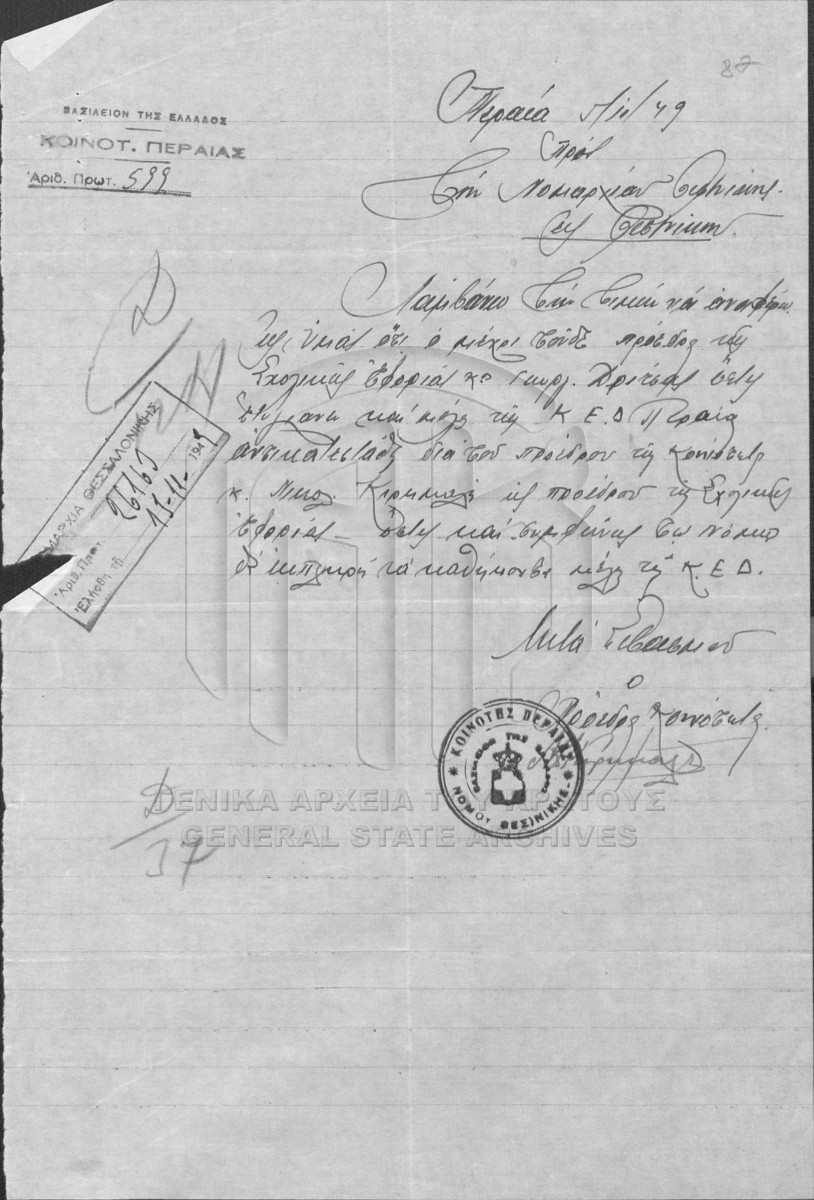 87
ΒΑΣΙΛΕΙΟΝ ΤΗΣ ΕΛΛΑΔΟΣ
ΚΟΙΝΟΤ. ΠΕΡΑΙΑΣ
Ἀριθ. Πρωτ. 599
Περαία 5/11/49
Πρὸς
Τὴν Νομαρχίαν Θεσ)νίκης
εἰς Θεσ)νίκην
Λαμβάνω τὴν τιμὴν νὰ ἀναφέρω
εἰς ὑμᾶς ὅτι ὁ μέχρι τοῦδε πρόεδρος τῆς
Σχολικῆς Ἐφορίας κος Γεωργ. ὅστις
καὶ μέλος τῆς Κ.Ε.Δ Περαίας
ἀντικατεστάθη διὰ τοῦ προέδρου τῆς Κοινότητος
κ. Νικολ. ὡς προέδρου τῆς Σχολικῆς
Ἐφορίας – ὅστις καὶ συμφώνως τῷ νόμῳ
θ' ἐκπληρῇ τὰ καθήκοντα μέλους τῆς Κ.Ε.Δ.
Μετὰ Σεβασμοῦ
Ο
Πρόεδρος Κοινότητος
ΝΟΜΑΡΧΙΑ ΘΕΣΣΑΛΟΝΙΚΗΣ
Ἀριθ. Πρωτ. 26165
Ἐλήφθη τῇ 13-11-1949
ΚΟΙΝΟΤΗΣ ΠΕΡΑΙΑΣ
ΒΑΣΙΛΕΙΟΝ ΤΗΣ ΕΛΛΑΔΟΣ
ΝΟΜΟΥ ΘΕΣ)ΝΙΚΗΣ
37
ΓΕΝΙΚΑ ΑΡΧΕΙΑ ΤΟΥ ΚΡΑΤΟΥΣ
GENERAL STATE ARCHIVES